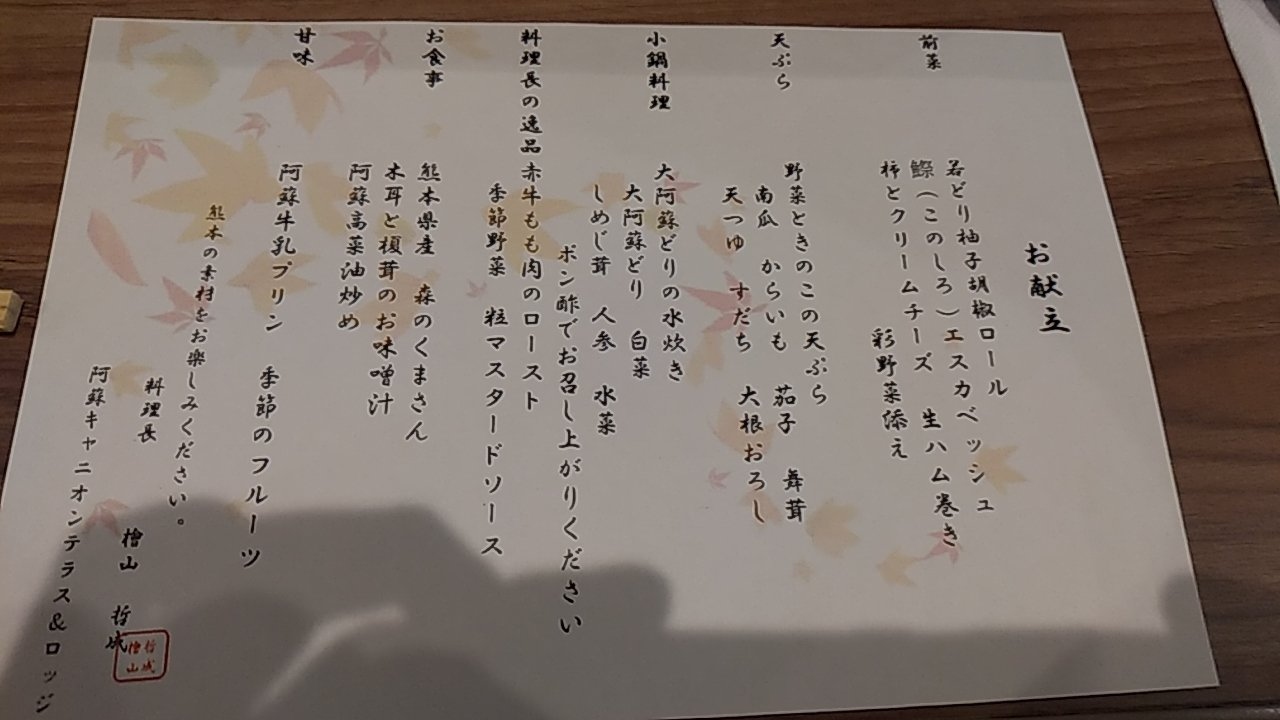 お献立
前菜
若どり柚子胡椒ロール
鰶（このしろ）エスカベッシュ
柿とクリームチーズ 生ハム巻き
彩野菜添え
天ぷら
野菜ときのこの天ぷら
南瓜 からいも 茄子 舞茸
天つゆ すだち 大根おろし
小鍋料理
大阿蘇どりの水炊き
大阿蘇どり 白菜
しめじ茸 人参 水菜
ポン酢でお召し上がりください
料理長の逸品
赤牛もも肉のロースト
季節野菜 粒マスタードソース
お食事
熊本県産 森のくまさん
木耳と榎茸のお味噌汁
阿蘇高菜油炒め
甘味
阿蘇牛乳プリン 季節のフルーツ
熊本の素材をお楽しみください。
料理長 檜山 哲
阿蘇キャニオンテラス＆ロッジ
檜山